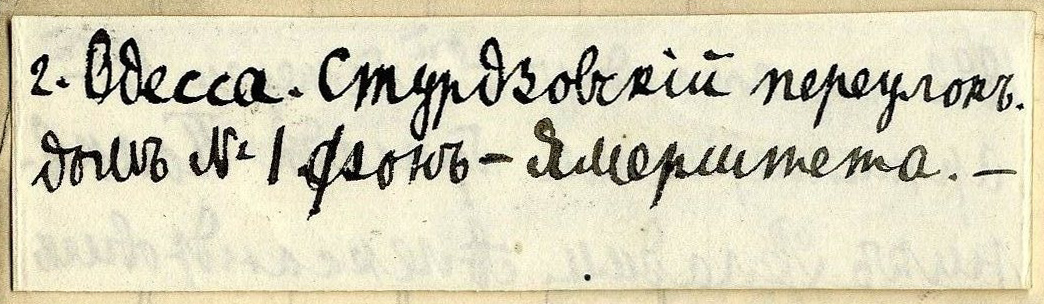 г. Одесса. Стурдзовскій переулокъ.
домъ № 1 фонъ – Ямерштета. –